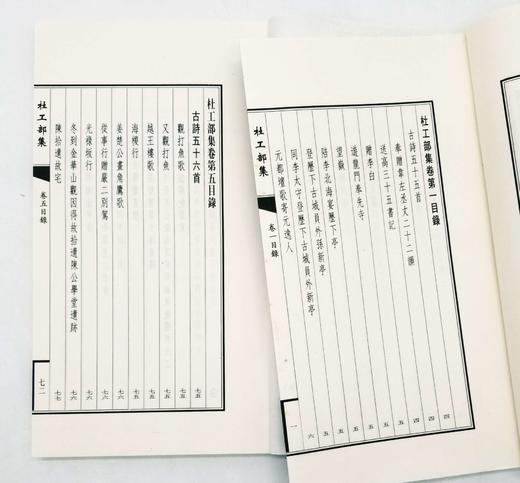 杜工部集卷第五目錄
古詩五十六首 七五
觀打魚歌 七五
又觀打魚 七五
越王樓歌 七五
海椶行 七五
姜楚公畫角鷹歌 七六
從事行贈嚴二別駕 七六
光祿坂行 七六
冬到金華山觀因得故拾遺陳公學堂遺跡 七六
陳拾遺故宅 七七
杜工部集
卷五目錄
七二
杜工部集卷第一目錄
古詩五十五首 四
奉贈韋左丞丈二十二韻 四
送高三十五書記 四
贈李白 五
遊龍門奉先寺 五
望嶽 五
陪李北海宴歷下亭 五
登歷下古城員外孫新亭 五
同李太守登歷下古城員外新亭 五
元都壇歌寄元逸人 六
杜工部集
卷一目錄
一